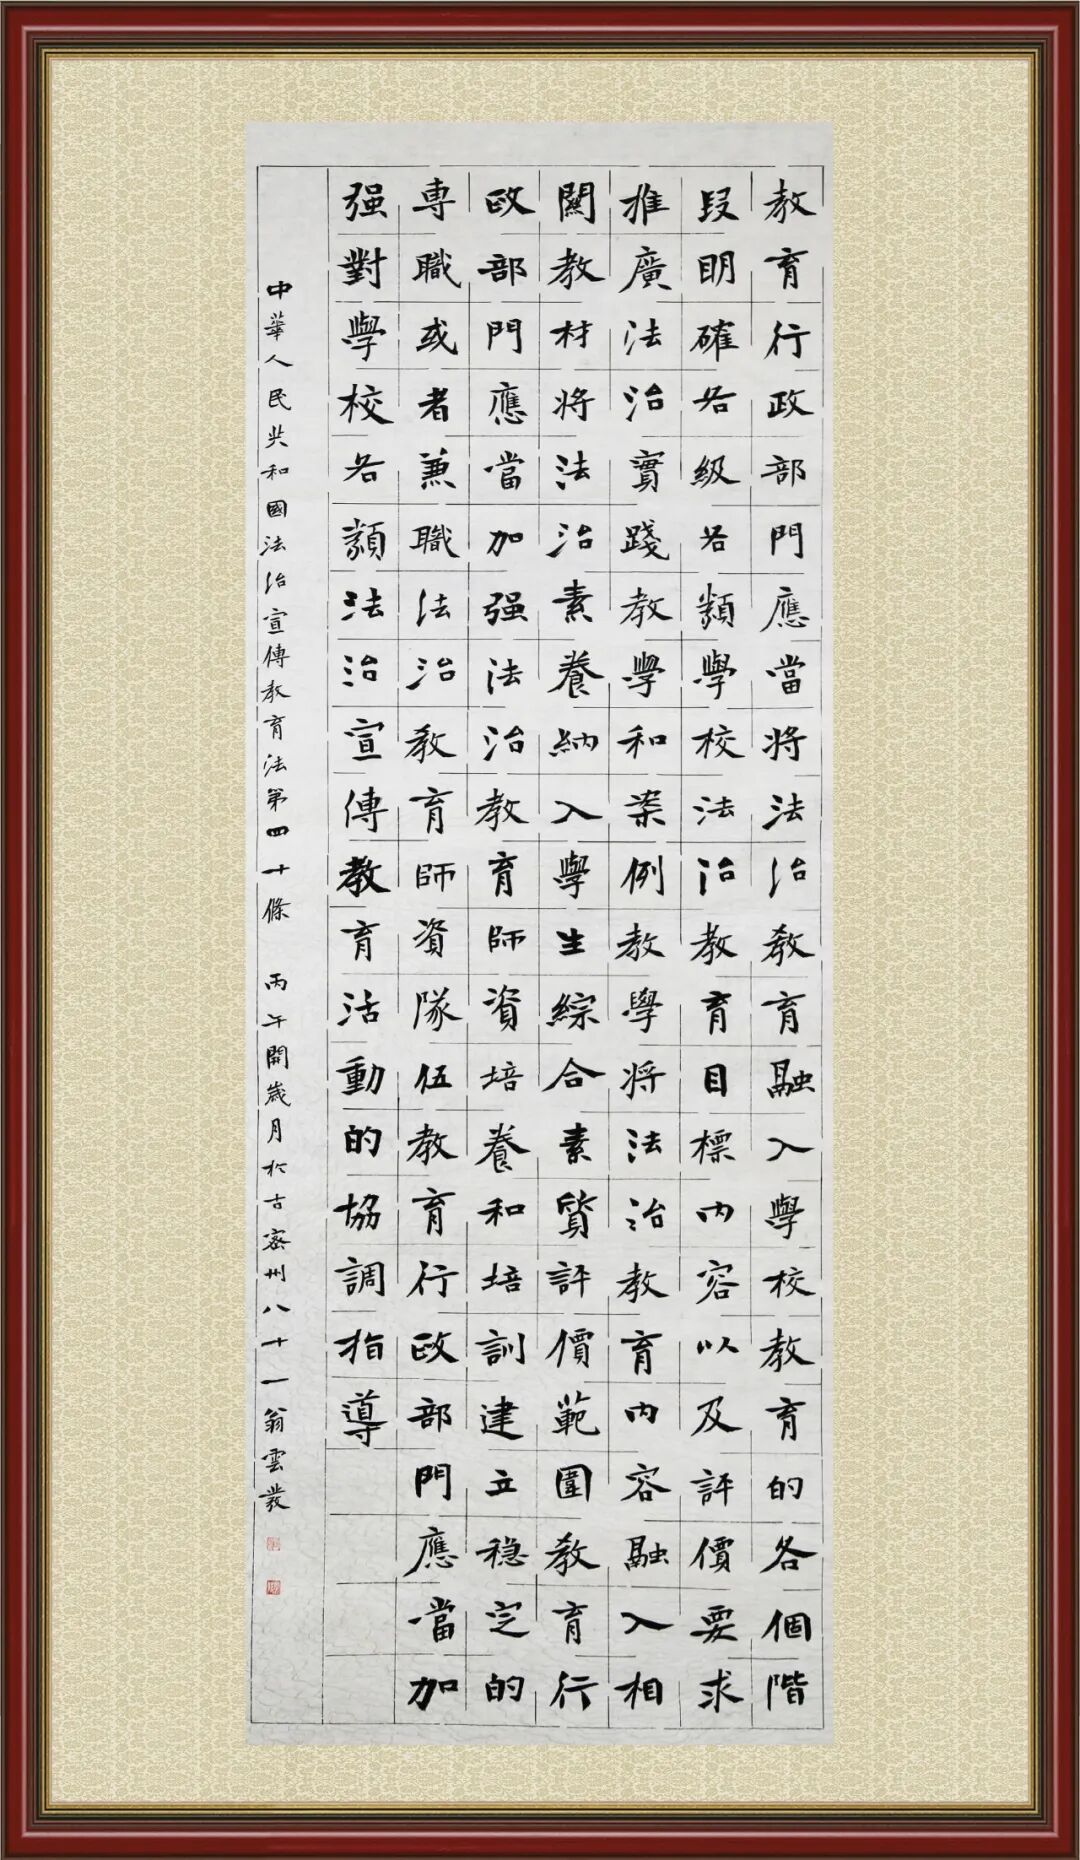 教育行政部門應當將法治教育融入學校教育的各個階
段明確各級各類學校法治教育目標內容以及評價要求
推廣法治實踐教學和案例教學將法治教育內容融入相
關教材將法治素養納入學生綜合素質評價範圍教育行
政部門應當加强法治教育師資培養和培訓建立穩定的
專職或者兼職法治教育師資隊伍教育行政部門應當加
强對學校各類法治宣傳教育活動的協調指導
中華人民共和國法治宣傳教育法第四十條 丙午開歲月於古密州八十一翁雲叢